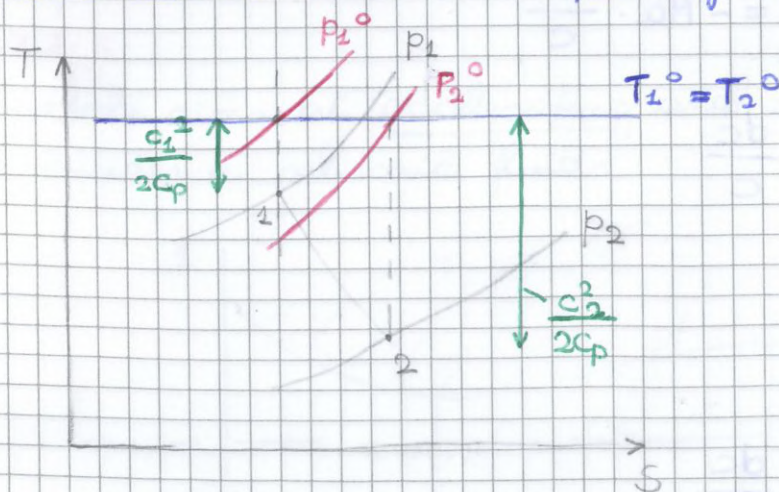 T
p₁⁰
p₁
p₂⁰
T₁⁰ = T₂⁰
c₁²
2cₚ
1
p₂
c₂²
2cₚ
2
S